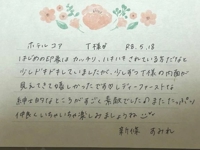 ホテルコア　T様　R8.5.18
はじめの印象は カッチリ、ハキハキされている方だなと
少しドキドキしていましたが、少しずつT様の内面が
見えてきて嬉しかったです レディーファーストな
お手は切りなところが すごく素敵でした またたっぷり
仲良くいちゃいちゃ楽しみましょうねっ♡
すみれ